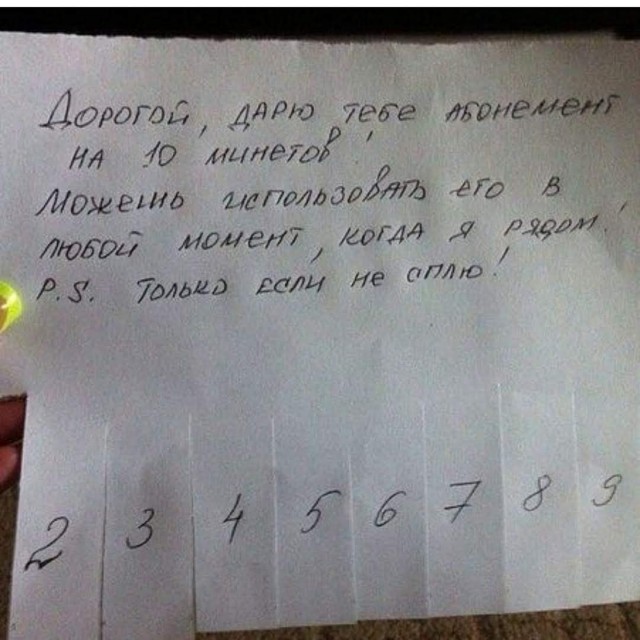 Дорогой, дарю тебе абонемент
на 10 минетов!
Можешь использовать его в
любой момент, когда я рядом!
P.S. Только если не сплю!
2 3 4 5 6 7 8 9